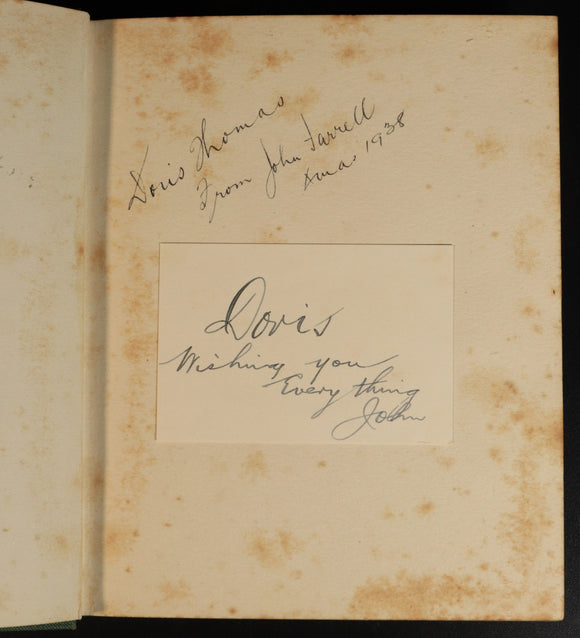 Doris Thomas
From John Farrell
Xmas 1938
Doris
Wishing you
Every thing
John